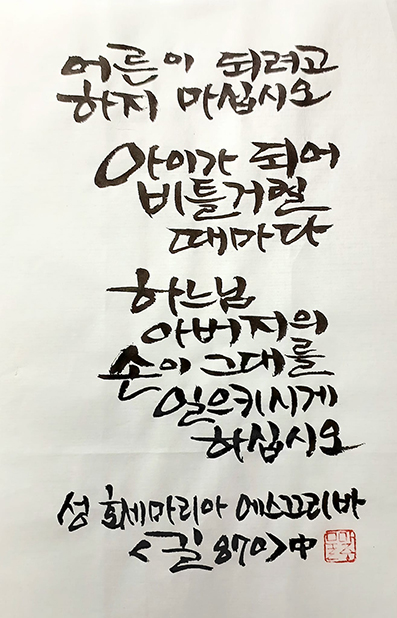 어른이 되려고
하지 마십시오
아이가 되어
비틀거릴
때마다
하느님
아버지의
손이 그대를
일으키시게
하십시오
성 호세마리아 에스끄리바
<길 870>中